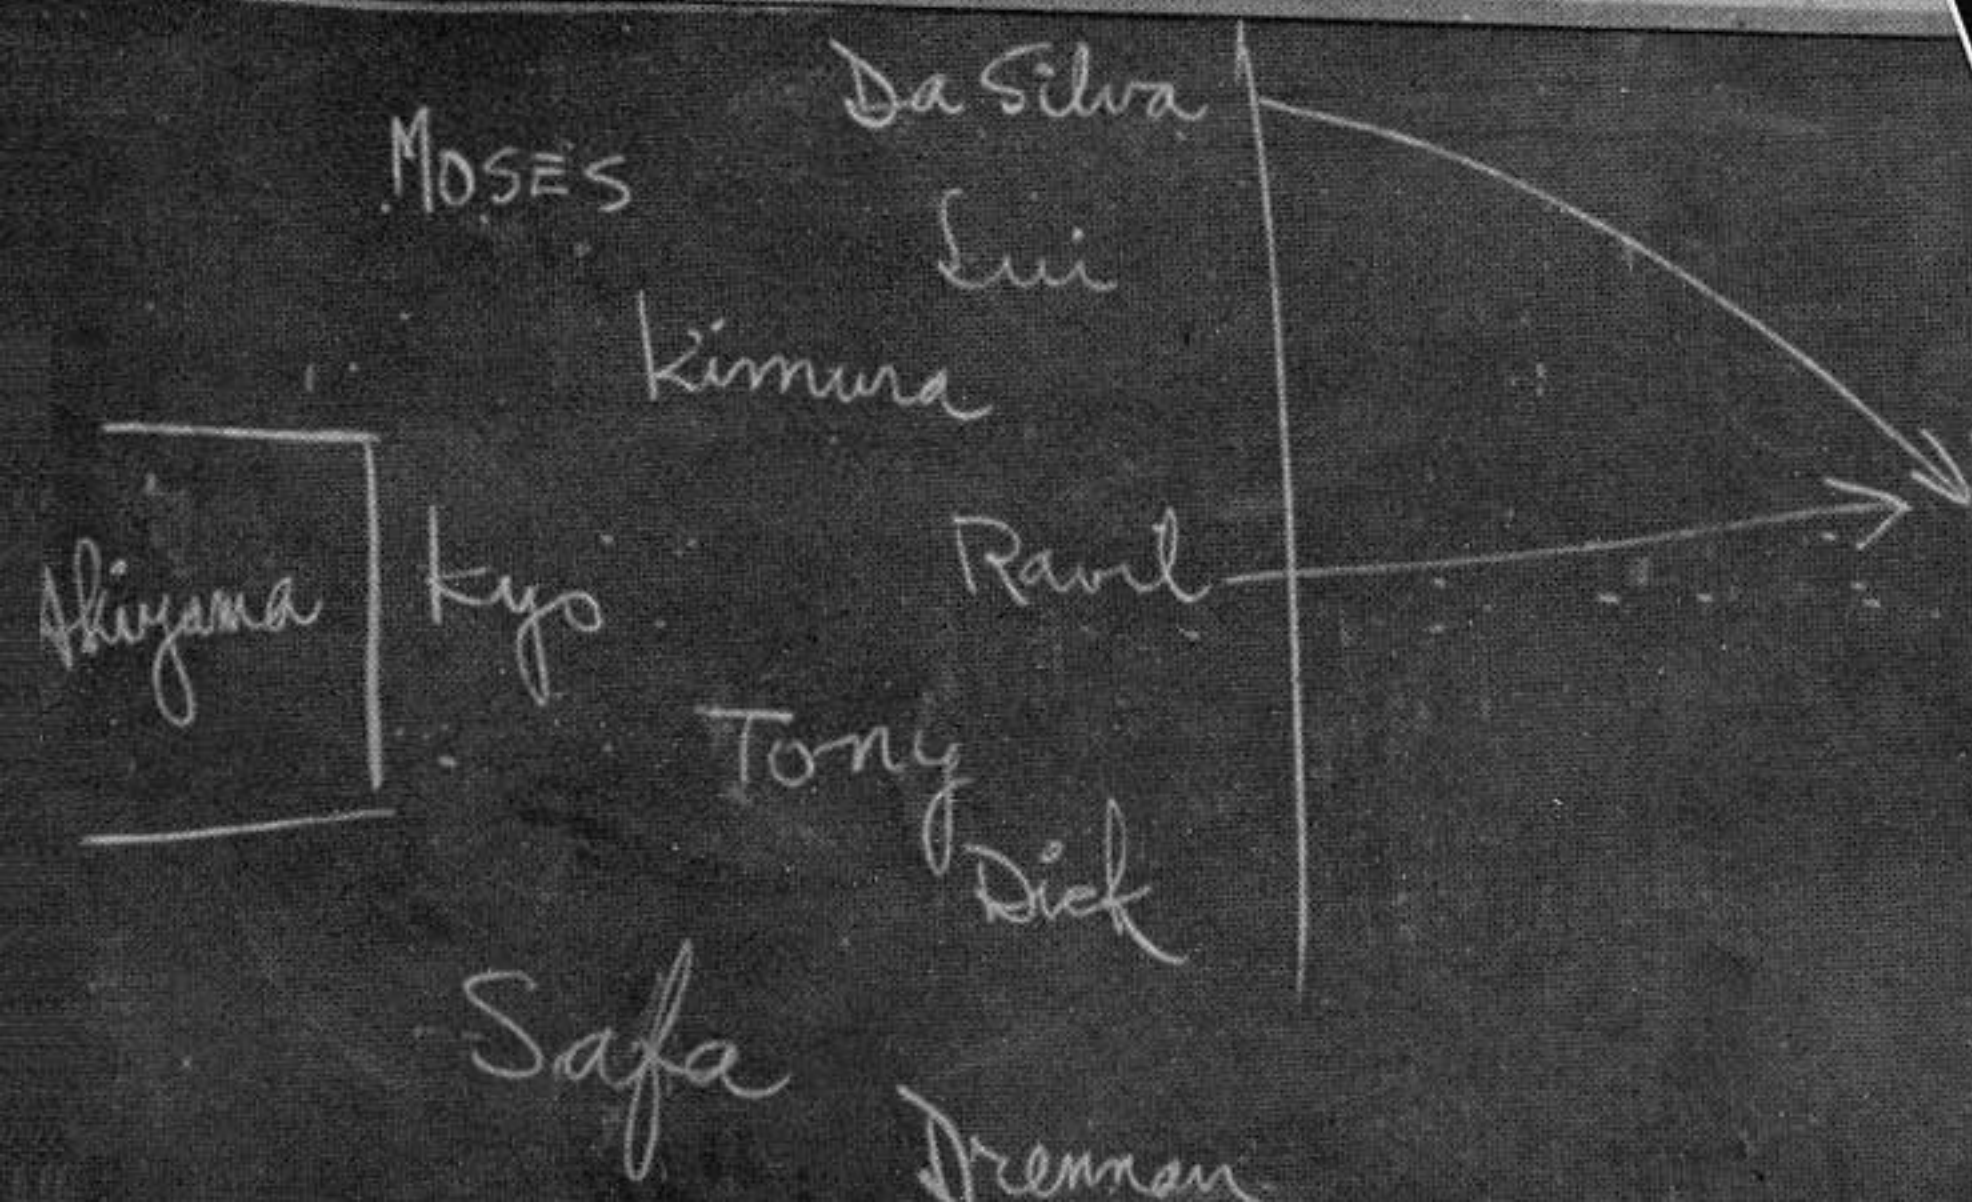 Da Silva
MOSES
Lui
Kimura
Akiyama
Kyo
Ravil
Tony
Dick
Safa
Drennan